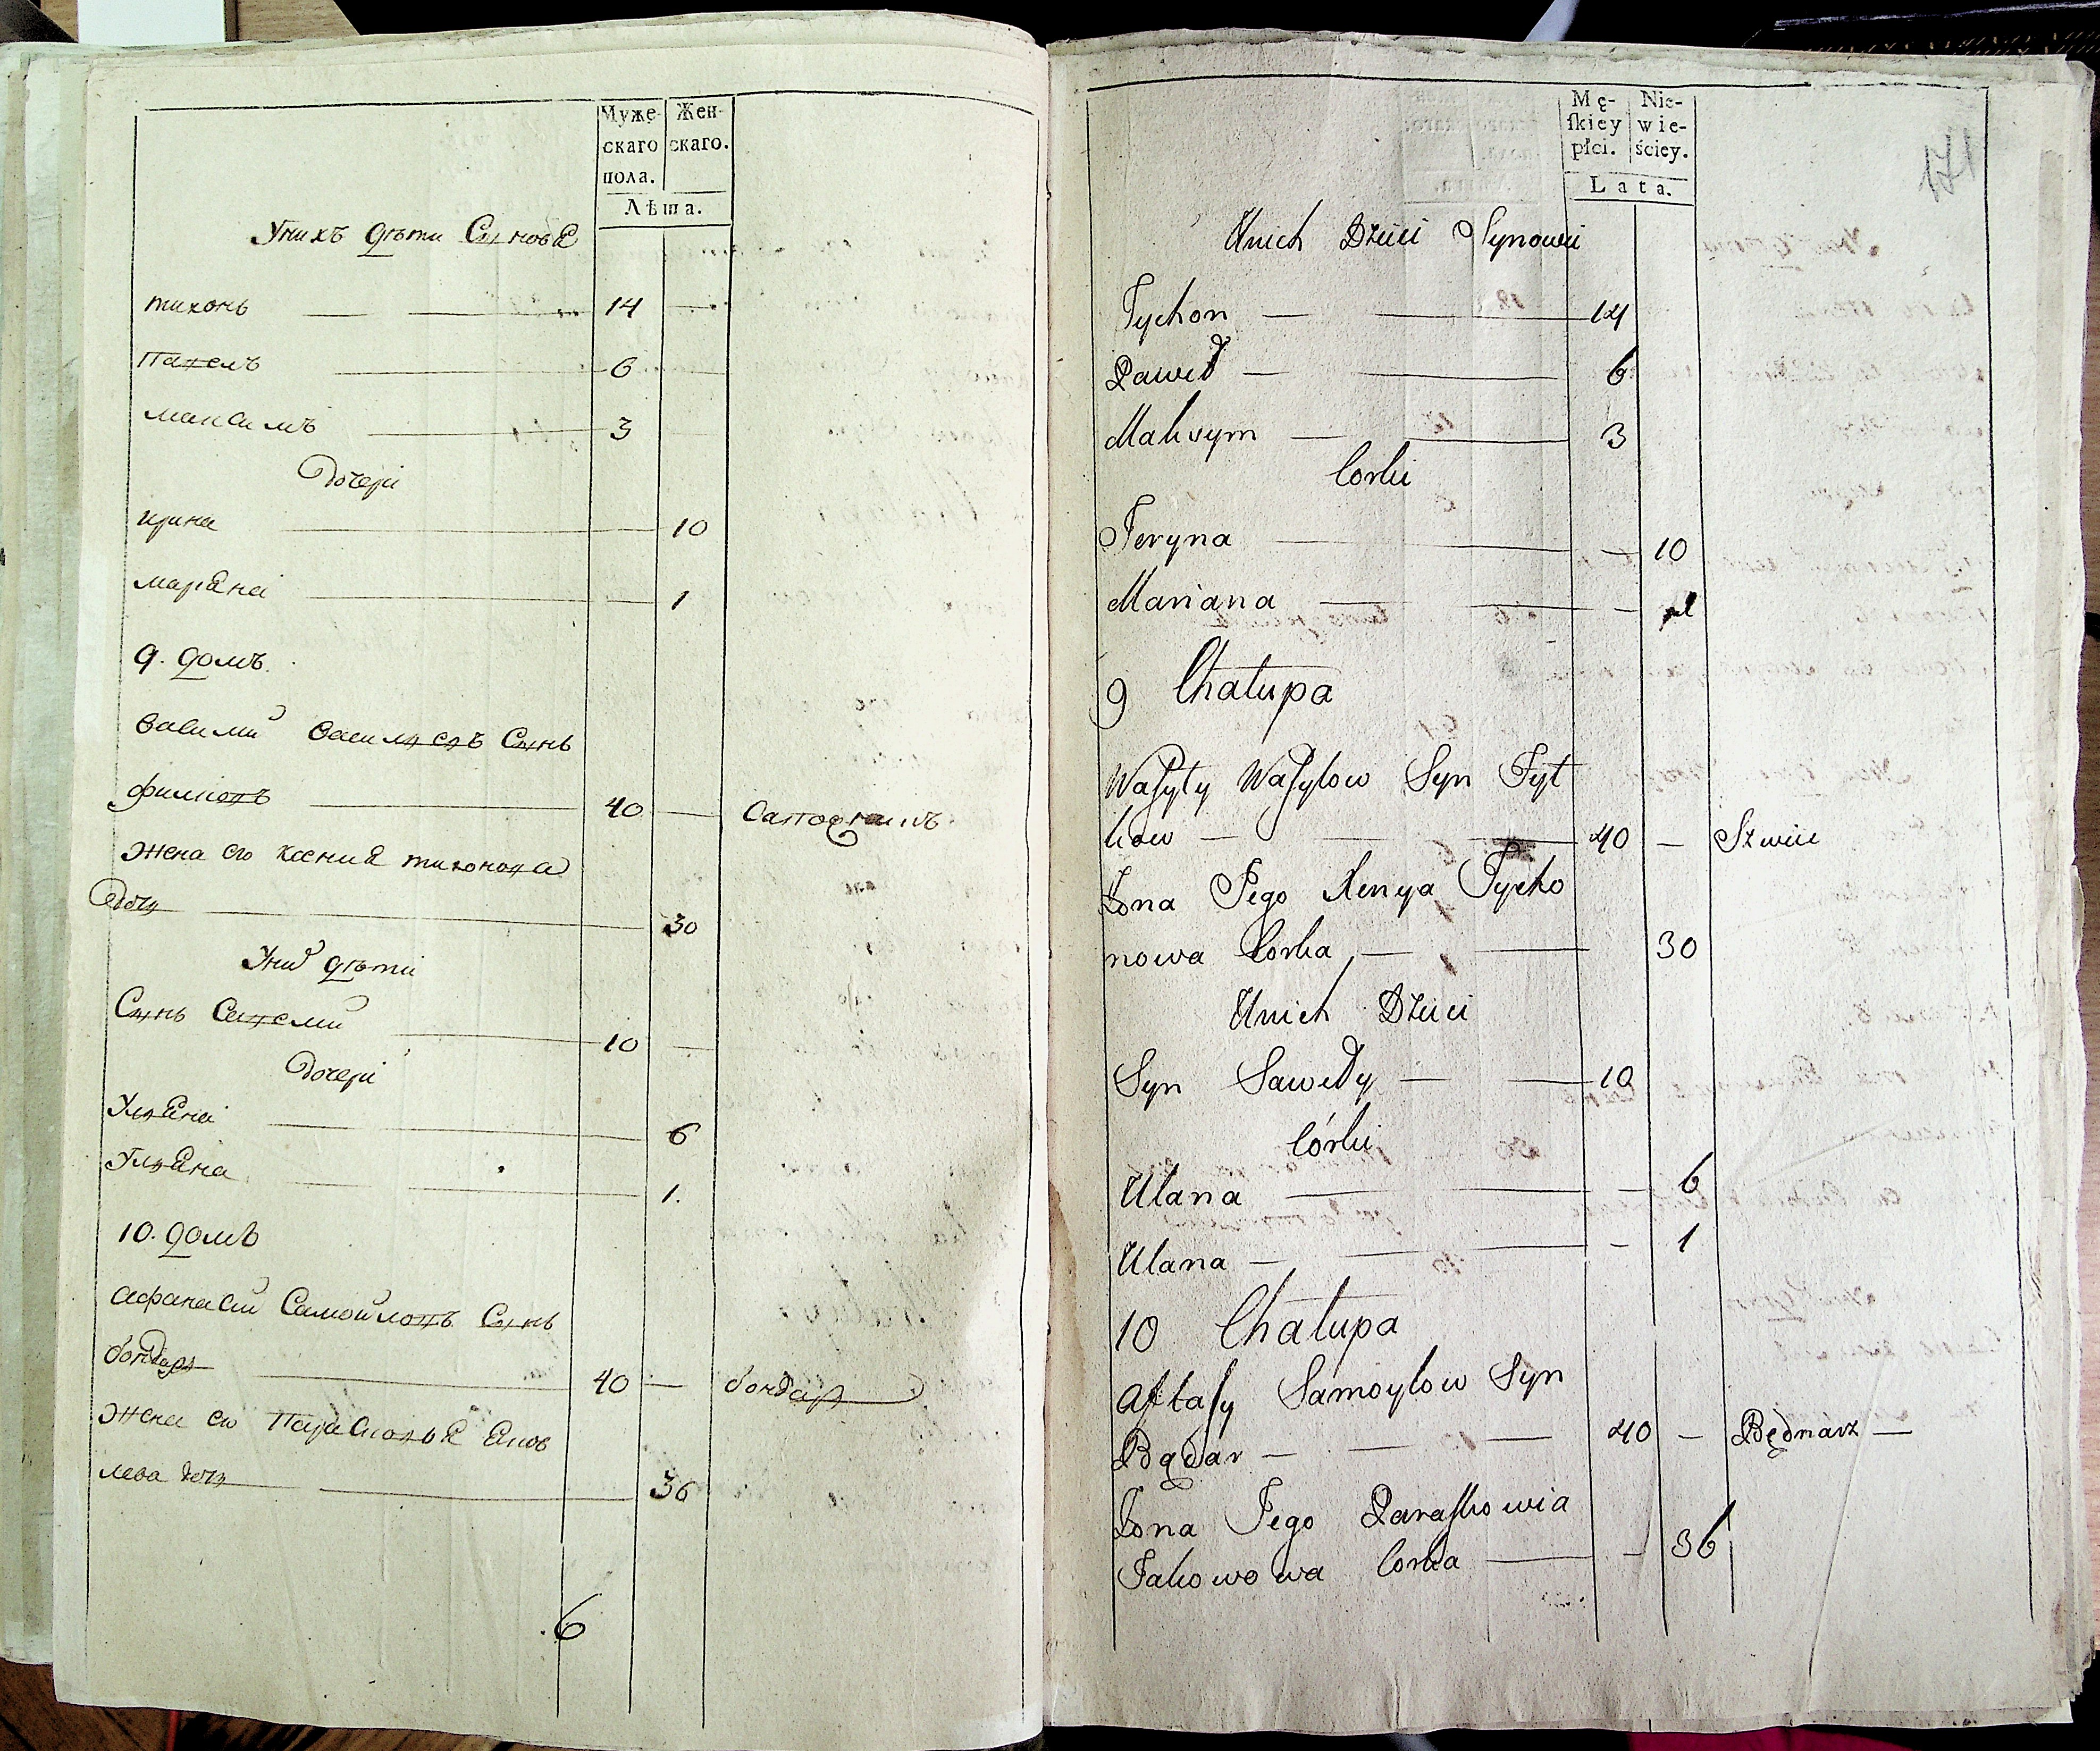 Муже-
скаго
пола.
Жен-
скаго.
Лѣта.
Унихъ дѣти Сыновя
тихонъ — 14 —
павелъ — 6
максимъ — 3
Дочери
ирина — 10
маряна — 1
9. домъ.
василий васильевъ Сынъ
филковъ — 40 — Сапожникъ
жена его ксения тихонова
дочь — 30
Уних дѣти
Сынъ Савелий — 10 —
Дочери
Уляна — 6
Уляна — 1.
10. домъ
афанасий Самойловъ Сынъ
бондарь — 40 — бондарь
жена его Парасковья Яков
лева дочь — 36
6
Mę-
ſkiey
płci.
Nie-
wie-
ściey.
Lata.
171
Unich Dzieci Synowie
Tychon — 14
Paweł — 6
Maksym — 3
Corki
Jeryna — 10
Mariana —
9 Chałupa
Waſyły Waſylow Syn Fył
kow — 40 — Szwiec
Żona Jego Xenya Tycho
nowa Corka — 30
Unich Dzieci
Syn Sawełły — 10
Córki
Ulana — 6
Ulana — 1
10 Chałupa
Aftaſy Samoyłow Syn
Bądar — 40 — Będnárz —
Żona Jego Paraſkowia
Jakowowa Corka — 36